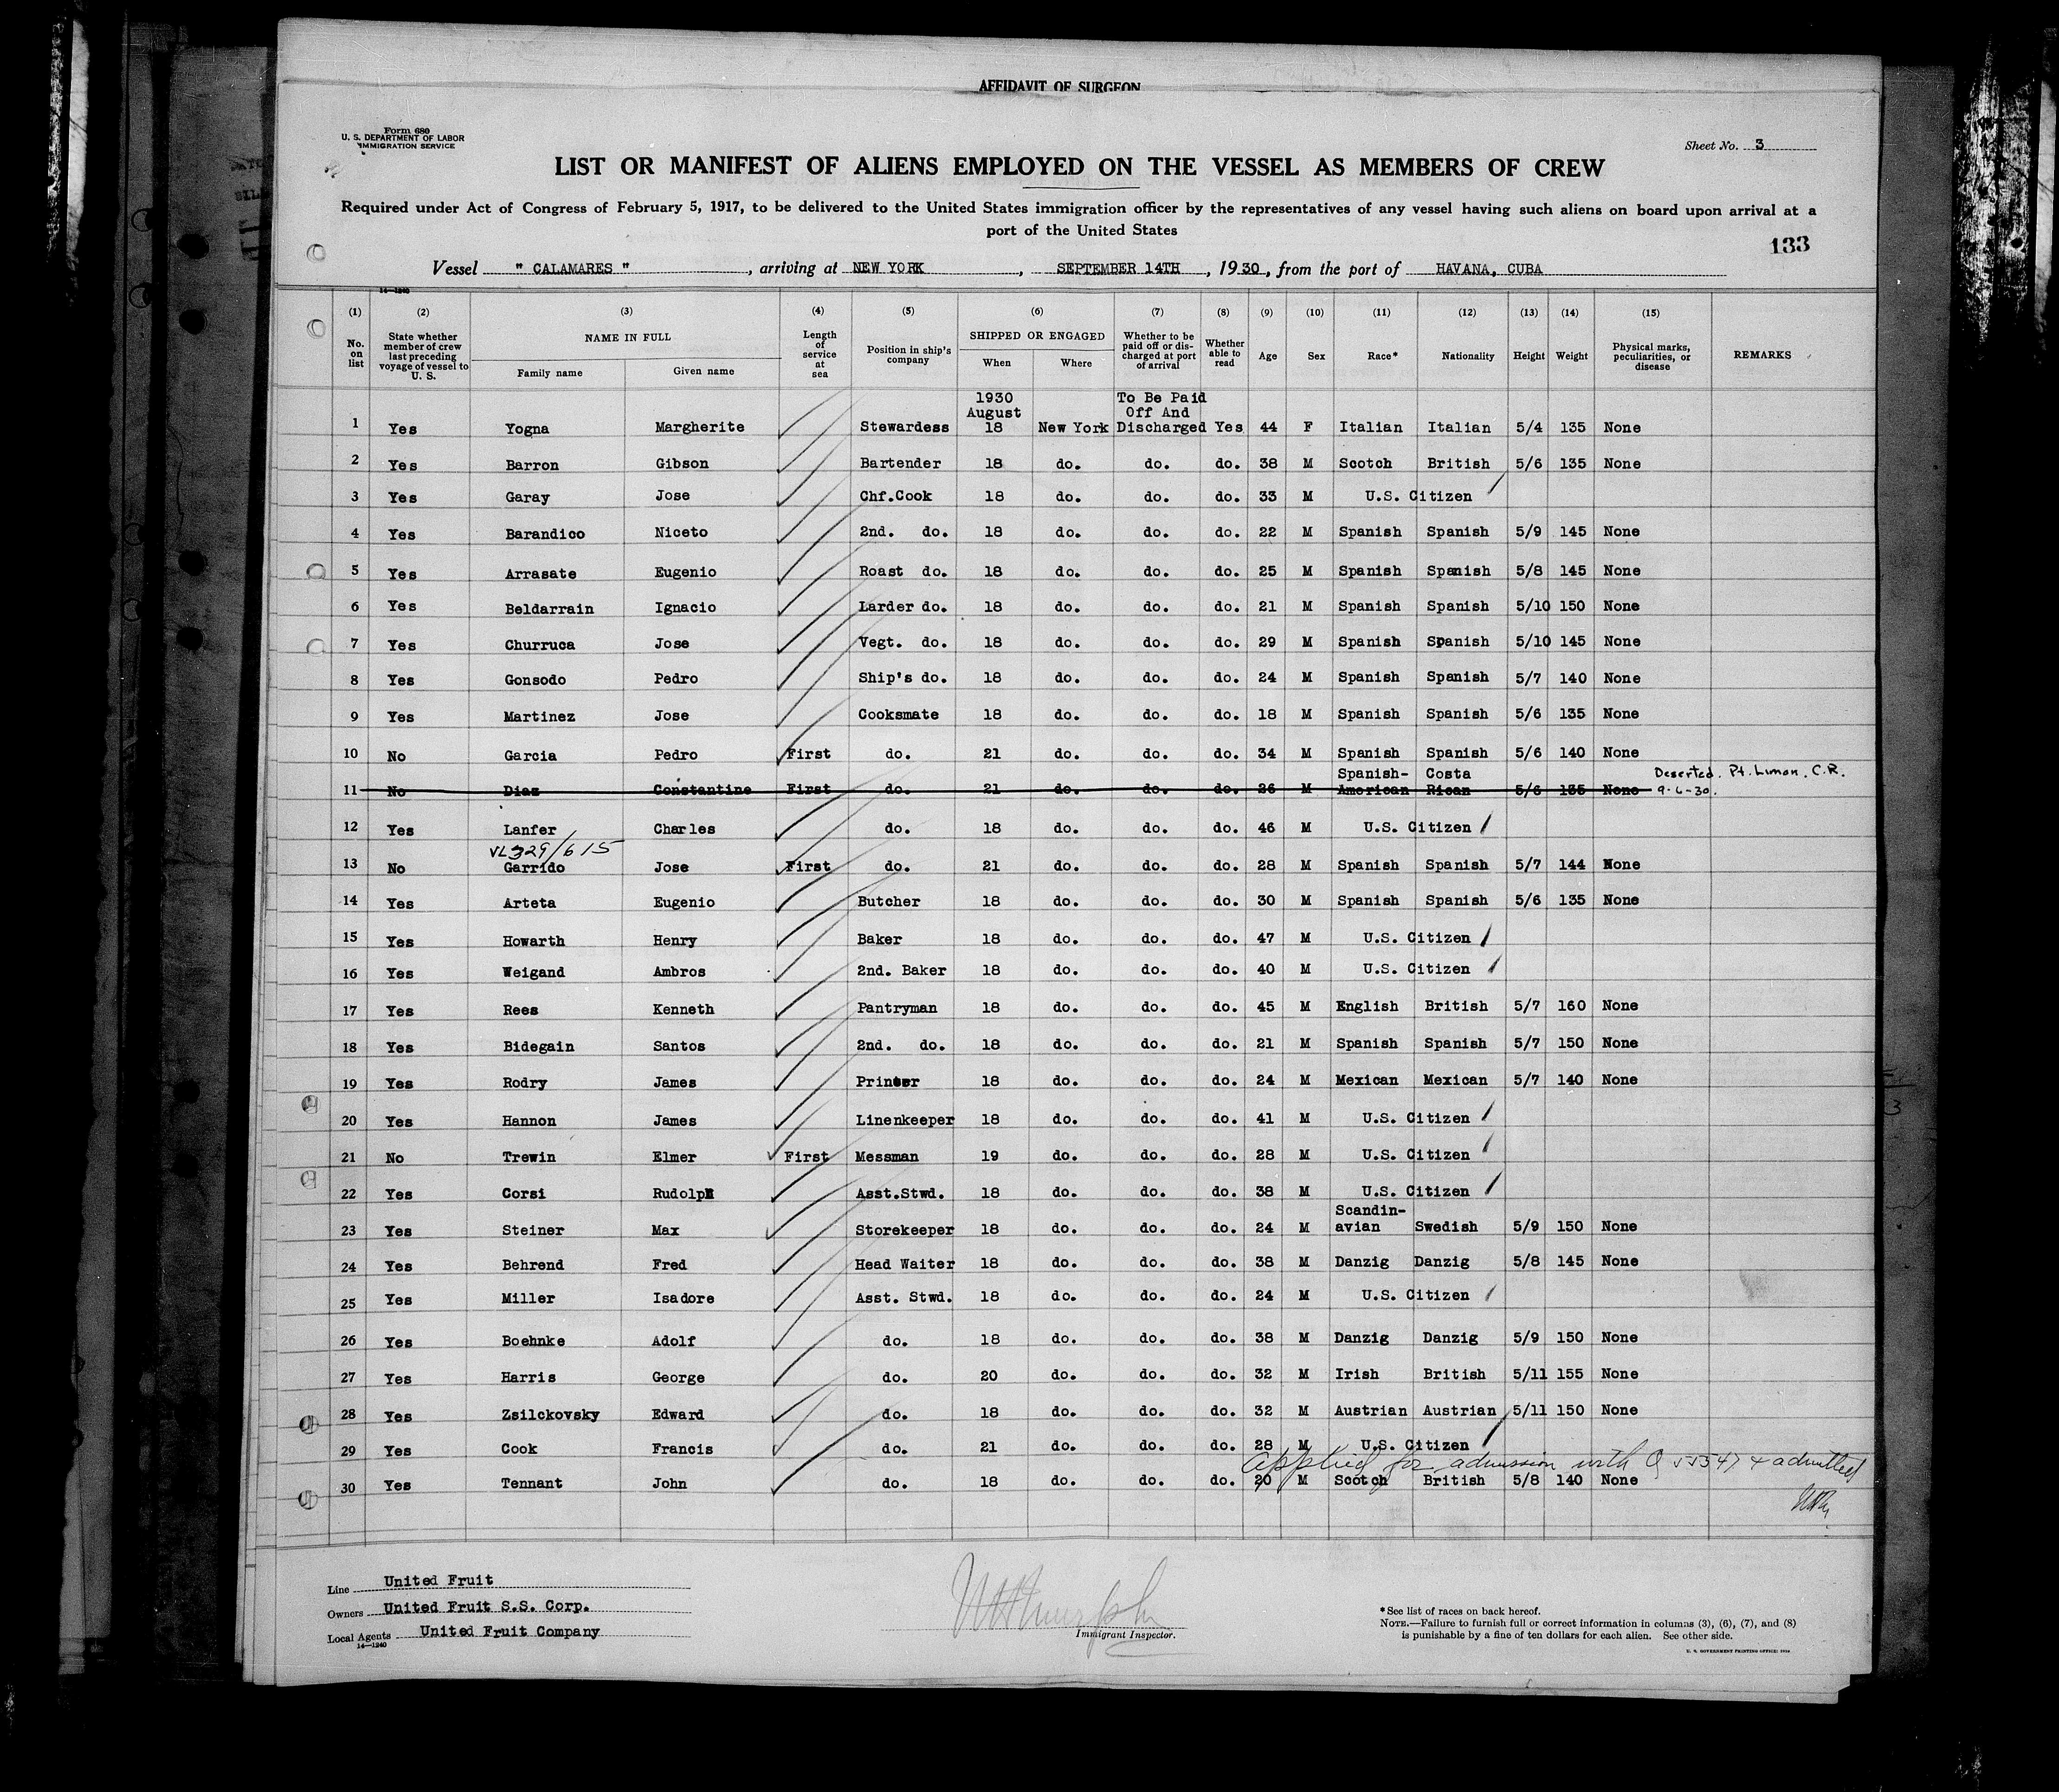 AFFIDAVIT OF SURGEON
Form 680
U. S. DEPARTMENT OF LABOR
IMMIGRATION SERVICE
Sheet No. 3
LIST OR MANIFEST OF ALIENS EMPLOYED ON THE VESSEL AS MEMBERS OF CREW
Required under Act of Congress of February 5, 1917, to be delivered to the United States immigration officer by the representatives of any vessel having such aliens on board upon arrival at a
port of the United States
133
Vessel " CALAMARES " , arriving at NEW YORK , SEPTEMBER 14TH , 1930 , from the port of HAVANA, CUBA
14—1240
(1) (2) (3) (4) (5) (6) (7) (8) (9) (10) (11) (12) (13) (14) (15)
No. on list State whether member of crew last preceding voyage of vessel to U. S. NAME IN FULL Family name Given name Length of service at sea Position in ship's company SHIPPED OR ENGAGED When Where Whether to be paid off or discharged at port of arrival Whether able to read Age Sex Race* Nationality Height Weight Physical marks, peculiarities, or disease REMARKS
1930 To Be Paid
August Off And
1 Yes Yogna Margherite Stewardess 18 New York Discharged Yes 44 F Italian Italian 5/4 135 None
2 Yes Barron Gibson Bartender 18 do. do. do. 38 M Scotch British 5/6 135 None
3 Yes Garay Jose Chf.Cook 18 do. do. do. 33 M U.S. Citizen
4 Yes Barandico Niceto 2nd. do. 18 do. do. do. 22 M Spanish Spanish 5/9 145 None
5 Yes Arrasate Eugenio Roast do. 18 do. do. do. 25 M Spanish Spanish 5/8 145 None
6 Yes Beldarrain Ignacio Larder do. 18 do. do. do. 21 M Spanish Spanish 5/10 150 None
7 Yes Churruca Jose Vegt. do. 18 do. do. do. 29 M Spanish Spanish 5/10 145 None
8 Yes Gonsodo Pedro Ship's do. 18 do. do. do. 24 M Spanish Spanish 5/7 140 None
9 Yes Martinez Jose Cooksmate 18 do. do. do. 18 M Spanish Spanish 5/6 135 None
10 No Garcia Pedro First do. 21 do. do. do. 34 M Spanish Spanish 5/6 140 None
Spanish- Costa Deserted. Pt. Limon. C.R.
11 No Diaz Constantine First do. 21 do. do. do. 26 M American Rican 5/6 135 None 9-6-30.
12 Yes Lanfer Charles do. 18 do. do. do. 46 M U.S. Citizen
VL 329/615
13 No Garrido Jose First do. 21 do. do. do. 28 M Spanish Spanish 5/7 144 None
14 Yes Arteta Eugenio Butcher 18 do. do. do. 30 M Spanish Spanish 5/6 135 None
15 Yes Howarth Henry Baker 18 do. do. do. 47 M U.S. Citizen
16 Yes Weigand Ambros 2nd. Baker 18 do. do. do. 40 M U.S. Citizen
17 Yes Rees Kenneth Pantryman 18 do. do. do. 45 M English British 5/7 160 None
18 Yes Bidegain Santos 2nd. do. 18 do. do. do. 21 M Spanish Spanish 5/7 150 None
19 Yes Rodry James Printer 18 do. do. do. 24 M Mexican Mexican 5/7 140 None
20 Yes Hannon James Linenkeeper 18 do. do. do. 41 M U.S. Citizen
21 No Trewin Elmer First Messman 19 do. do. do. 28 M U.S. Citizen
22 Yes Corsi Rudolph Asst.Stwd. 18 do. do. do. 38 M U.S. Citizen
Scandin-
23 Yes Steiner Max Storekeeper 18 do. do. do. 24 M avian Swedish 5/9 150 None
24 Yes Behrend Fred Head Waiter 18 do. do. do. 38 M Danzig Danzig 5/8 145 None
25 Yes Miller Isadore Asst. Stwd. 18 do. do. do. 24 M U.S. Citizen
26 Yes Boehnke Adolf do. 18 do. do. do. 38 M Danzig Danzig 5/9 150 None
27 Yes Harris George do. 20 do. do. do. 32 M Irish British 5/11 155 None
28 Yes Zsilckovsky Edward do. 18 do. do. do. 32 M Austrian Austrian 5/11 150 None
29 Yes Cook Francis do. 21 do. do. do. 28 M U.S. Citizen
applied for admission with & admitted
30 Yes Tennant John do. 18 do. do. do. 20 M Scotch British 5/8 140 None
Line United Fruit
Owners United Fruit S.S. Corp.
Local Agents United Fruit Company
14—1240
Immigrant Inspector.
* See list of races on back hereof.
NOTE.—Failure to furnish full or correct information in columns (3), (6), (7), and (8)
is punishable by a fine of ten dollars for each alien. See other side.